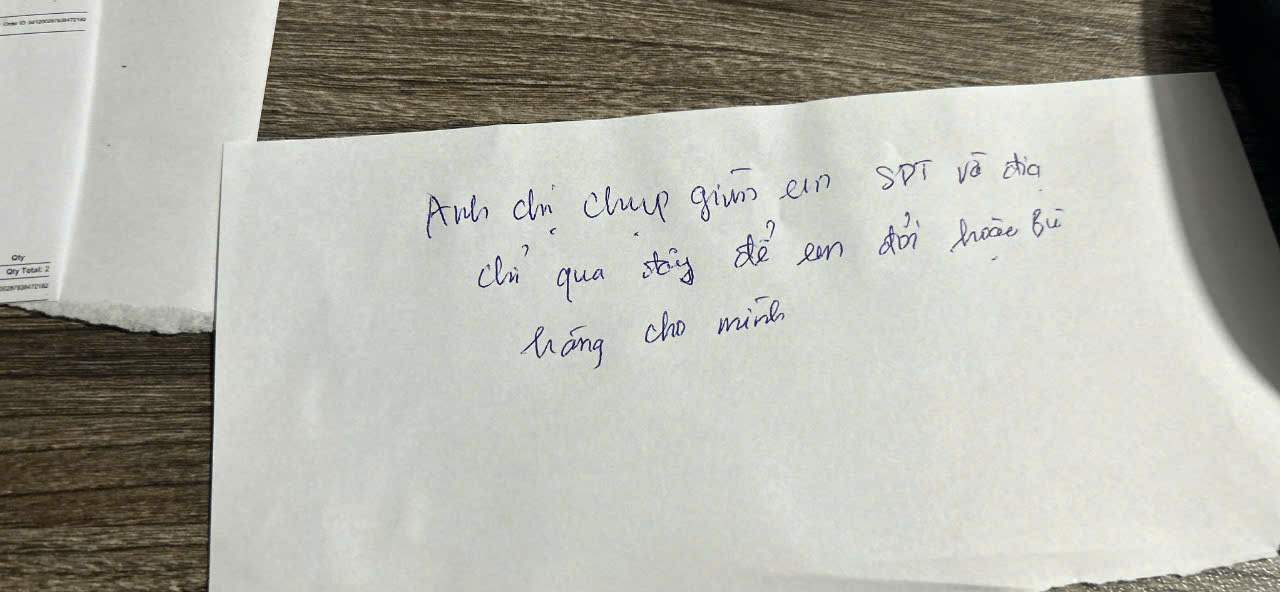 Order ID: 
Qty
Qty Total: 2
Anh chị chụp giùm em SĐT và địa
chỉ qua đây để em đổi hoặc bù
hàng cho mình